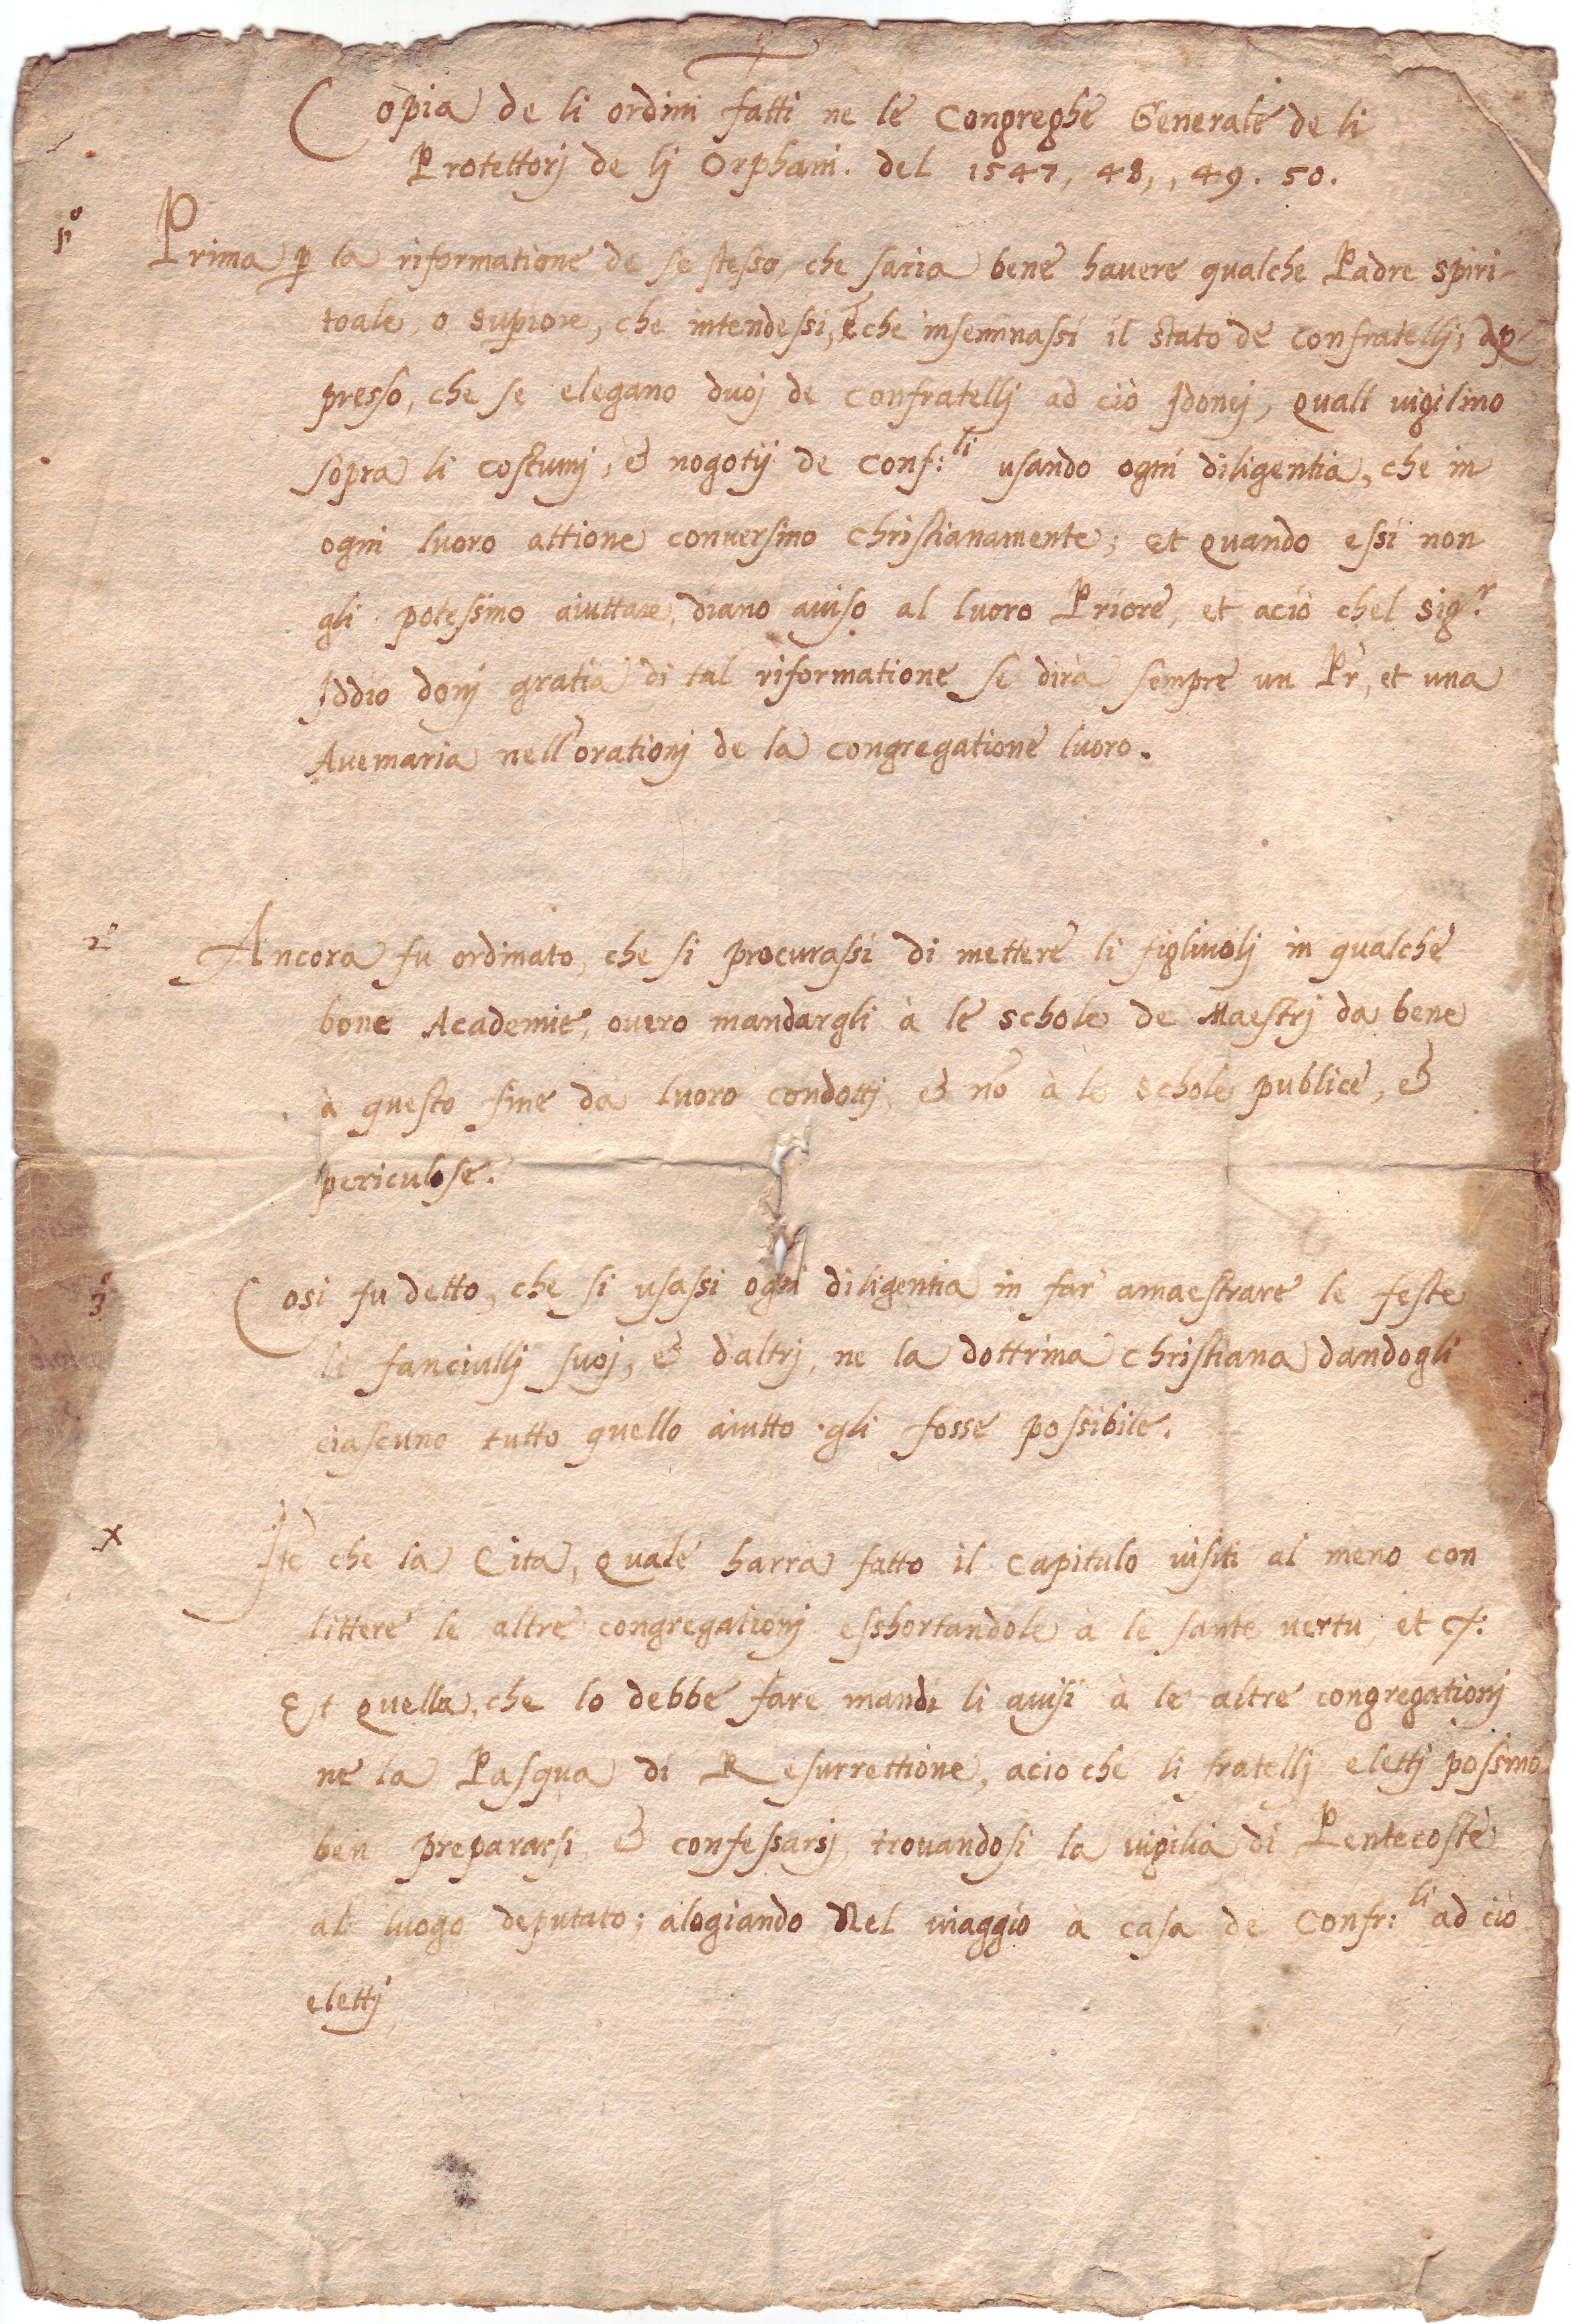 Copia de li ordini fatti ne le Congreghe Generale de li
Protettorj de lj Orphani. del 1547, 48,, 49. 50.
p° Prima p la riformatione de se stesso, che saria bene havere qualche Padre spiri-
toale, o supiore, che intendessi, & che insemnassi il stato de confratellj; ap-
presso, che se elegano duoj de confratellj ad ciò Idonej, quali vigilino
sopra li costumj, & nogotij de Conf:li usando ogni diligentia, che in
ogni luoro attione conversino christianamente; et quando essi non
gli potessino aiuttare, diano aviso al luoro Priore, et aciò chel Sig.r
Iddio donj gratia di tal riformatione se dirà sempre un Pr, et una
Avemaria nell'orationj de la congregatione luoro.
2° Ancora fu ordinato, che si procurassi di mettere li figliuolj in qualche
bone Academie, overo mandargli à le schole de Maestrj da bene
à questo fine da luoro condottj, & nõ à le schole publice, &
periculose.
3° Cosi fu detto, che si usassi ogni diligentia in far amaestrare le feste
le fanciullj suoj, & d'altrj, ne la dottrina christiana dandogli
ciascuno tutto quello aiutto gli fosse possibile.
x Itẽ che la Cita, quale harra fatto il Capitulo visiti al meno con
littere le altre congregationj esshortandole à le sante vertu, et c:
Et quella, che lo debbe fare mandi li avisi à le altre congregationj
ne la Pasqua di Resurrettione, acio che li fratellj elettj possino
ben prepararsi, & confessarsj, trovandosi la vigilia di Pentecoste
al luogo deputato; alogiando Nel viaggio à casa de Confr:li ad ciò
elettj